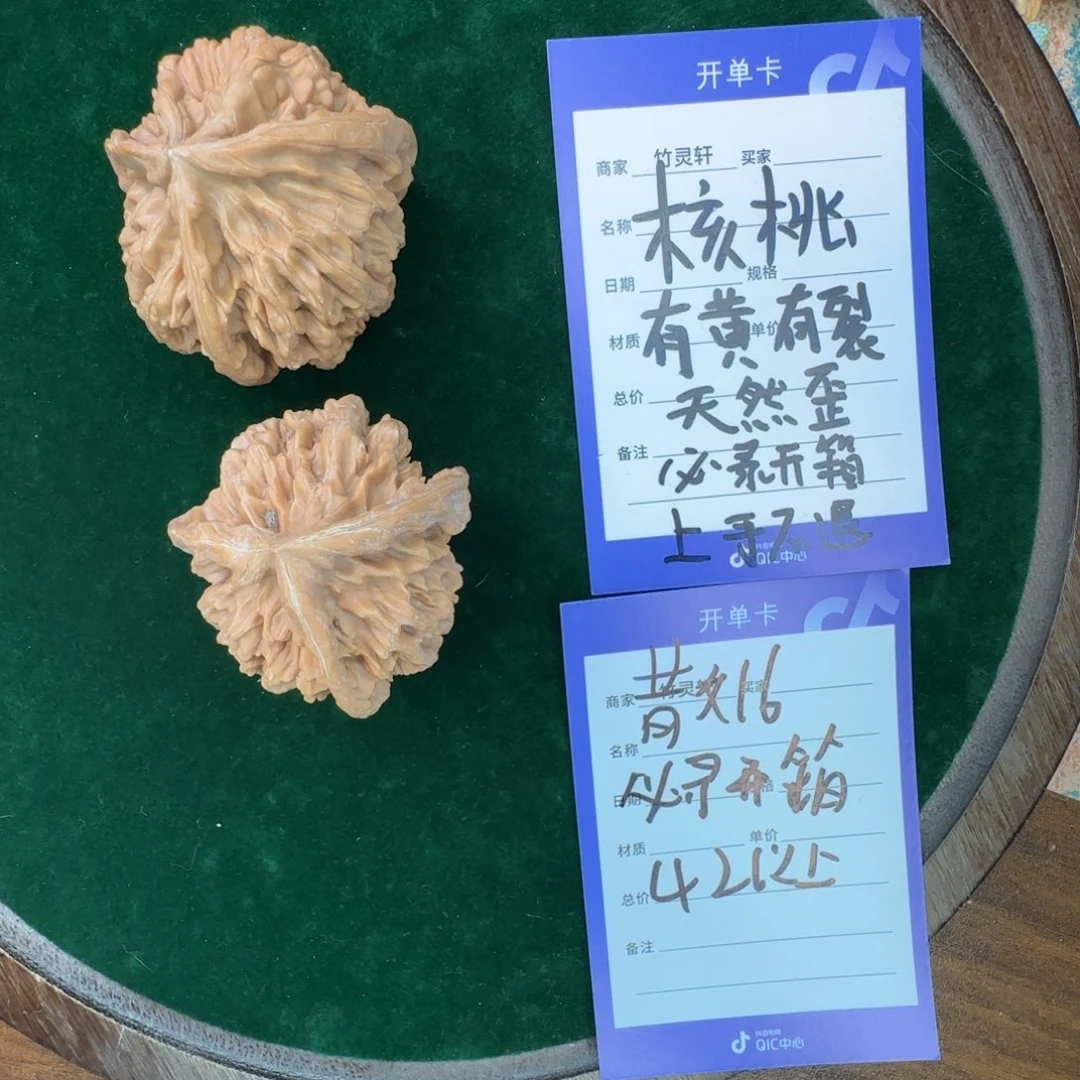 开单卡
商家 竹灵轩 买家
名称 核桃
日期 规格
材质 有黄有裂 单价
总价 天然歪
备注 必录开箱
上手不退
QIC中心
开单卡
商家 竹灵 买家
昔文16
名称
日期 格
必录开箱
材质 单价
总价 42以上
备注
抖音电商
QIC中心